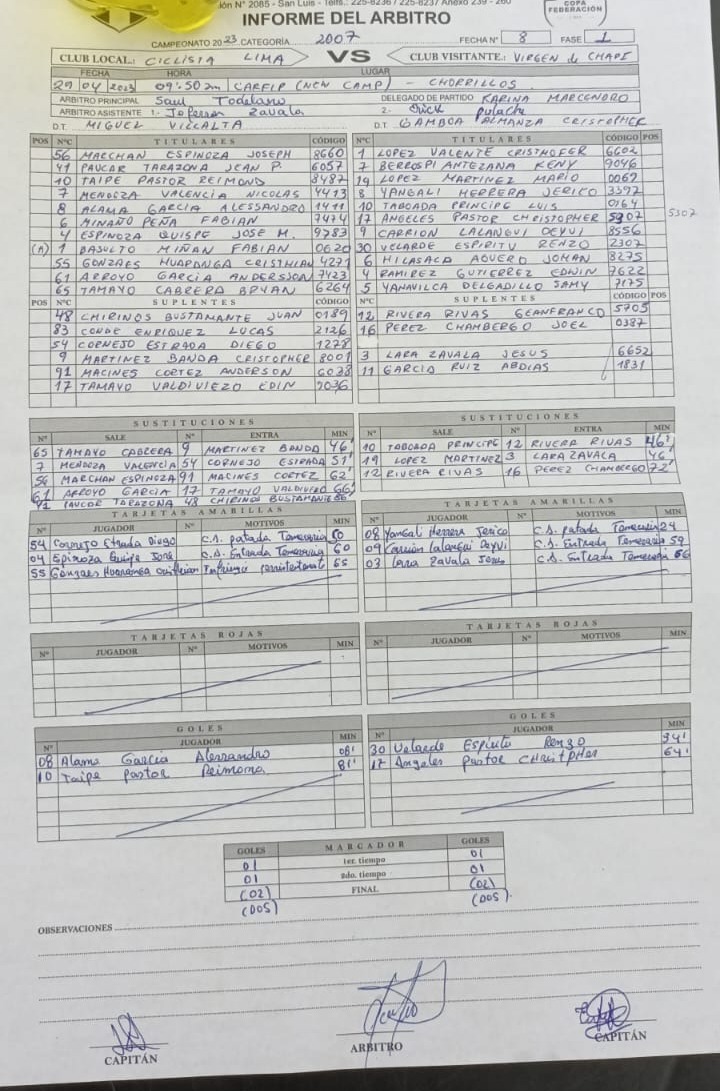 ión Nº 2085 - San Luis - Telfs.: 225-8236 / 225-8237 Anexo 239 - 260
COPA FEDERACIÓN
INFORME DEL ARBITRO
CAMPEONATO 2023 CATEGORÍA 2007 FECHA Nº 8 FASE 1
CLUB LOCAL: CICLISTA LIMA VS CLUB VISITANTE: VIRGEN de CHAPI
FECHA HORA LUGAR
29 04 2023 09:50 am CAREIP (NEW CAMP) - CHORRILLOS
ARBITRO PRINCIPAL Saul Toledano DELEGADO DE PARTIDO KARINA MARCENORO
ARBITRO ASISTENTE 1.- Jeferson Zavala 2.- Erick Pulache
D.T. MIGUEL VILLALTA D.T. GAMBOA ALMANZA CRISTOPHER
POS NºC TITULARES CÓDIGO NºC TITULARES CÓDIGO POS
56 MARCHAN ESPINOZA JOSEPH 8660 1 LOPEZ VALENTE CRISTHOFER 6602
41 PAUCAR TARAZONA JEAN P. 6057 7 BERROSPI ANTEZANA KENY 9046
10 TAIPE PASTOR REIMOND 8487 19 LOPEZ MARTINEZ MARIO 0069
7 MENDOZA VALENCIA NICOLAS 4413 8 YANGALI HERRERA JERICO 3397
8 ALAMA GARCIA ALESSANDRO 1411 10 TABOADA PRINCIPE LUIS 0164
6 MINAÑO PEÑA FABIAN 7474 17 ANGELES PASTOR CHRISTOPHER 5307 5307
4 ESPINOZA QUISPE JOSE M. 9783 9 CARRION LALANGUI DEYVI 8556
(A) 1 BASULTO MIÑAN FABIAN 0620 30 VELARDE ESPIRITU RENZO 2307
55 GONZAES HUAPANGA CRISTHIAN 4271 6 HILASACA AGUERO JOHAN 8275
61 ARROYO GARCIA ANDERSSON 7423 4 RAMIREZ GUTIERREZ EDWIN 7622
65 TAMAYO CABRERA BRYAN 6264 5 YANAVILCA DELGADILLO SAMY 7175
POS NºC SUPLENTES CÓDIGO NºC SUPLENTES CÓDIGO POS
48 CHIRINOS BUSTAMANTE JUAN 0189 12 RIVERA RIVAS GEANFRANCO 5705
83 CONDE ENRIQUEZ LUCAS 2126 16 PEREZ CHAMBERGO JOEL 0387
54 CORNEJO ESTRADA DIEGO 1278
9 MARTINEZ BANDA CRISTOPHER 8001 3 LARA ZAVALA JESUS 6652
91 MACINES CORTEZ ANDERSON 6038 11 GARCIA RUIZ ABDIAS 1831
17 TAMAYO VALDIVIEZO EDIN 9036
SUSTITUCIONES SUSTITUCIONES
Nº SALE Nº ENTRA MIN Nº SALE Nº ENTRA MIN
65 TAMAYO CABRERA 9 MARTINEZ BANDA 46' 10 TABOADA PRINCIPE 12 RIVERA RIVAS 46'
7 MENDOZA VALENCIA 54 CORNEJO ESTRADA 51' 19 LOPEZ MARTINEZ 3 LARA ZAVALA 46'
56 MARCHAN ESPINOZA 91 MACINES CORTEZ 62' 12 RIVERA RIVAS 16 PEREZ CHAMBERGO 72'
61 ARROYO GARCIA 17 TAMAYO VALDIVIEZO 66'
41 PAUCAR TARAZONA 48 CHIRINOS BUSTAMANTE
TARJETAS AMARILLAS TARJETAS AMARILLAS
Nº JUGADOR Nº MOTIVOS MIN Nº JUGADOR Nº MOTIVOS MIN
54 Cornejo Estrada Diego C.A. patada Temeraria 50 08 Yangali Herrera Jerico C.A. patada Temeraria 24
04 Espinoza Quispe Jose C.A. Entrada Temeraria 60 09 Carrion Lalangui Deyvi C.A. Entrada Temeraria 59
55 Gonzaes Huaranga cristhian Infringir persistentemente 65 03 Lara Zavala Jesus C.A. Entrada Temeraria 66
TARJETAS ROJAS TARJETAS ROJAS
Nº JUGADOR Nº MOTIVOS MIN Nº JUGADOR Nº MOTIVOS MIN
GOLES GOLES
Nº JUGADOR MIN Nº JUGADOR MIN
08 Alama Garcia Alessandro 08' 30 Velarde Espiritu Renzo 34'
10 Taipe Pastor Reimond 81' 17 Angeles Pastor CHristpHer 64'
GOLES MARCADOR GOLES
01 1er. tiempo 01
01 2do. tiempo 01
(02) FINAL (02)
(DOS) (DOS)
OBSERVACIONES
CAPITÁN ARBITRO CAPITÁN